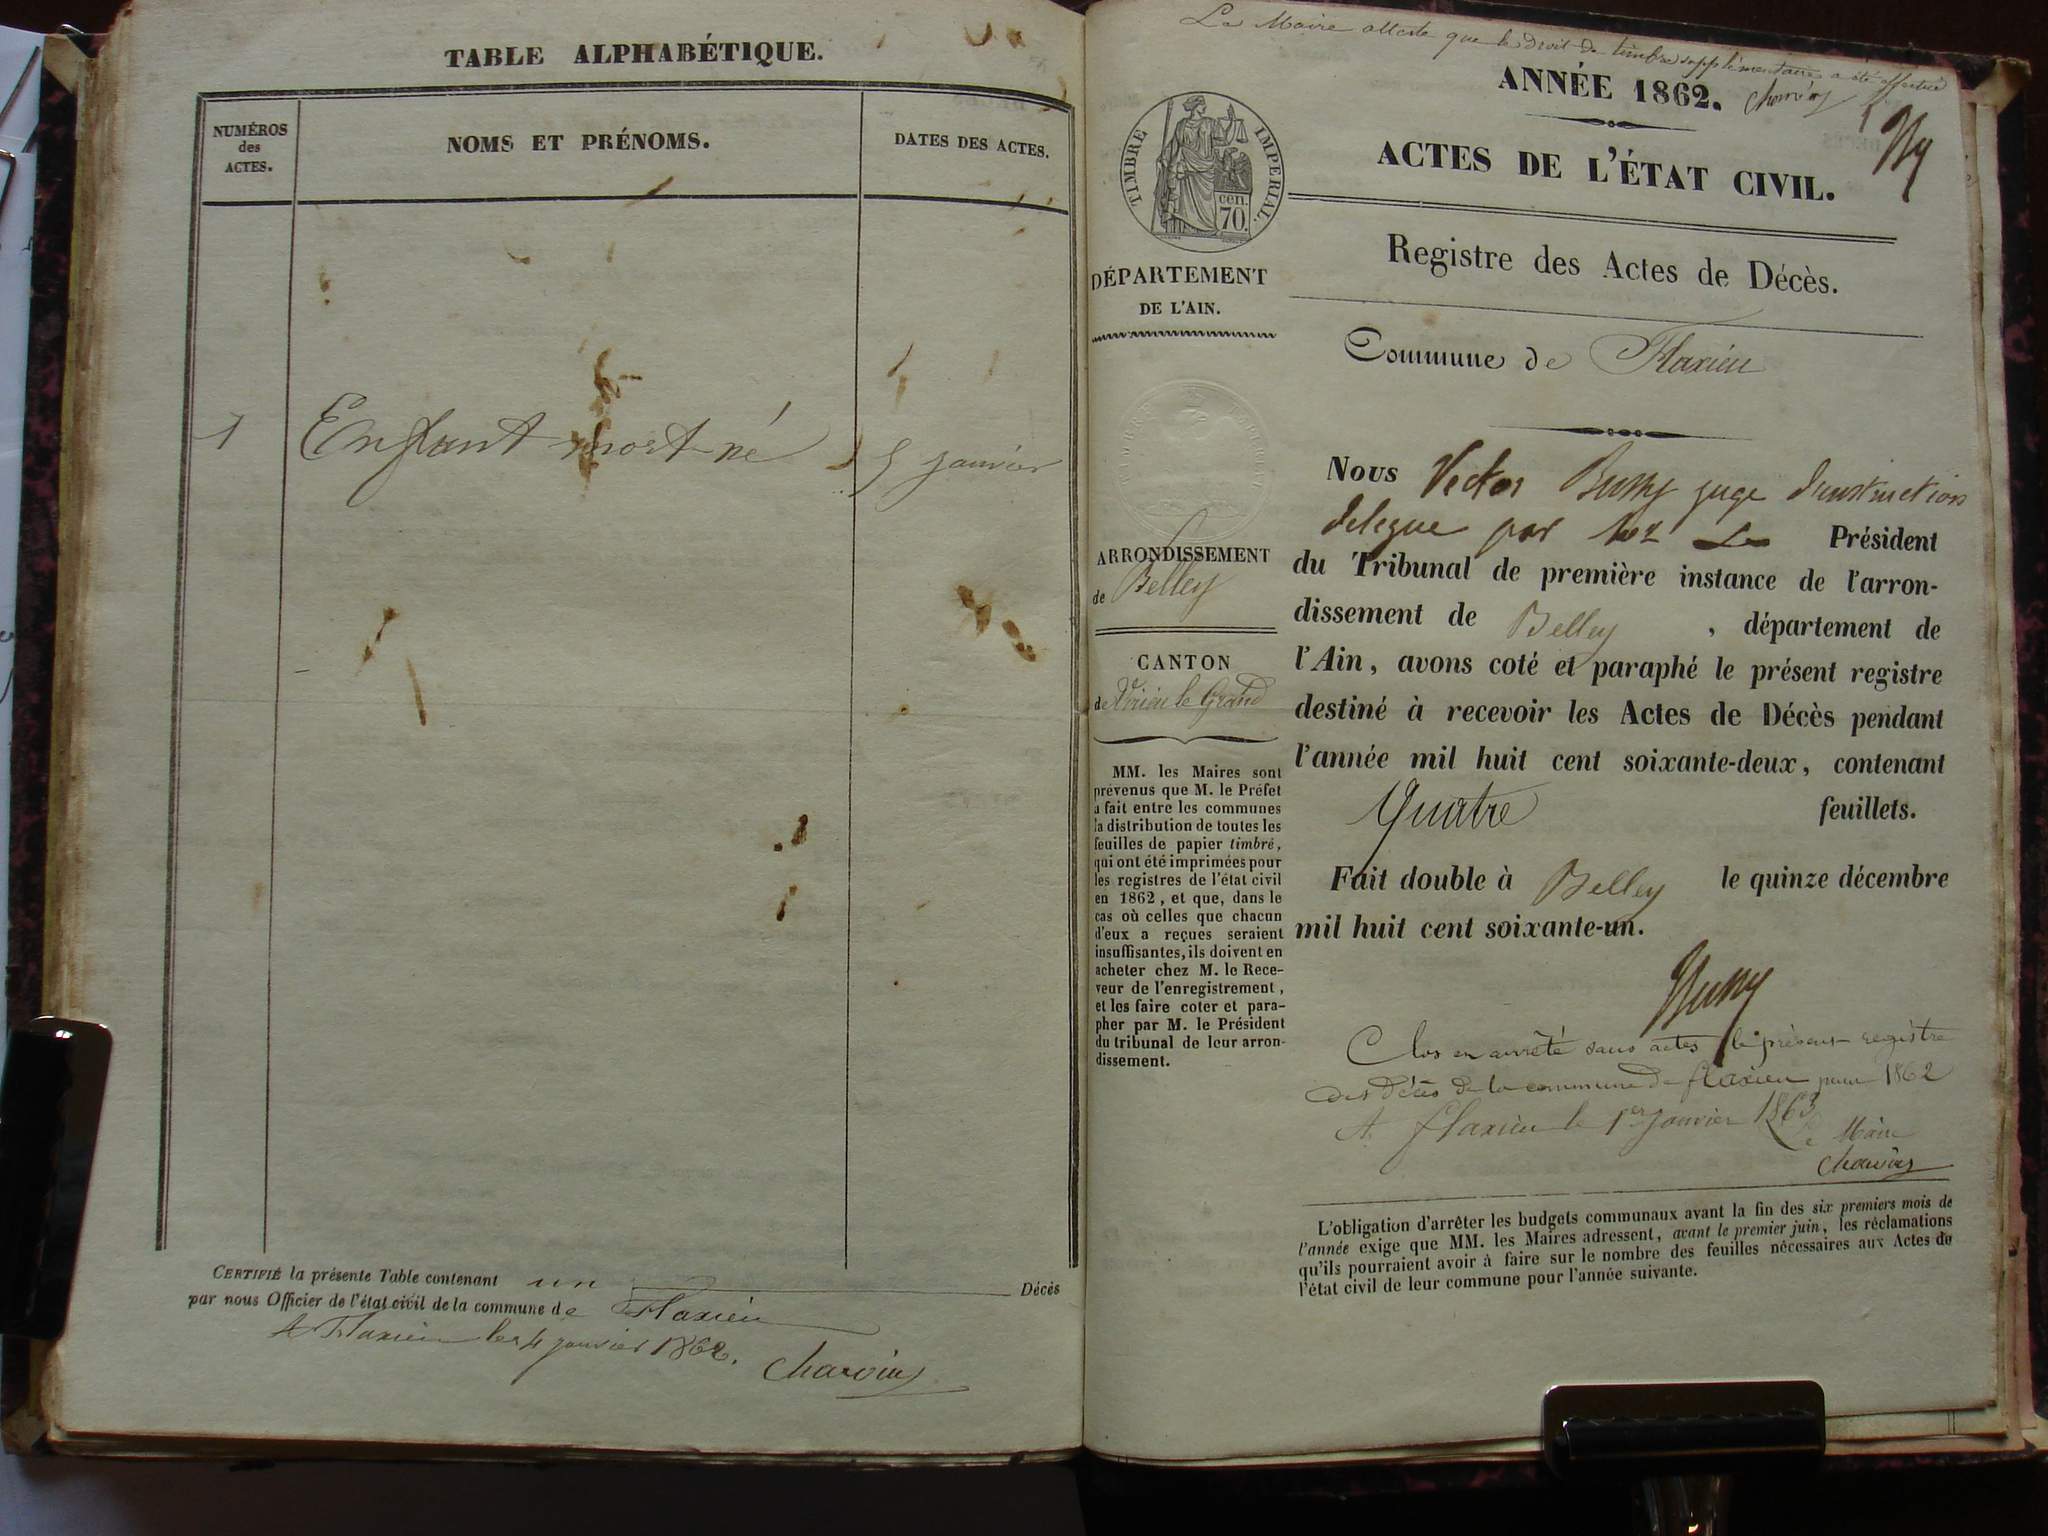 TABLE ALPHABÉTIQUE.
NUMÉROS
des
ACTES.
NOMS ET PRÉNOMS.
DATES DES ACTES.
1 Enfant mort-né 5 janvier
CERTIFIÉ la présente Table contenant un Décès
par nous Officier de l'état civil de la commune de Flaxieu
A Flaxieu le 4 janvier 1862.
Le Maire atteste que le droit de timbre supplémentaire a été
ANNÉE 1862.
ACTES DE L'ÉTAT CIVIL.
TIMBRE IMPÉRIAL.
cen.
70.
Registre des Actes de Décès.
DÉPARTEMENT
DE L'AIN.
Commune de Flaxieu
ARRONDISSEMENT
de Belley
CANTON
de Virieu le Grand
MM. les Maires sont
prévenus que M. le Préfet
a fait entre les communes
la distribution de toutes les
feuilles de papier timbré,
qui ont été imprimées pour
les registres de l'état civil
en 1862, et que, dans le
cas où celles que chacun
d'eux a reçues seraient
insuffisantes, ils doivent en
acheter chez M. le Rece-
veur de l'enregistrement,
et les faire coter et para-
pher par M. le Président
du tribunal de leur arron-
dissement.
Nous Victor juge d'instruction
delegue par Le Président
du Tribunal de première instance de l'arron-
dissement de Belley, département de
l'Ain, avons coté et paraphé le présent registre
destiné à recevoir les Actes de Décès pendant
l'année mil huit cent soixante-deux, contenant
Quatre feuillets.
Fait double à Belley le quinze décembre
mil huit cent soixante-un.
Clos en arrêté sans actes le présent registre
des décès de la commune de flaxieu pour 1862
A flaxieu le 1er janvier 1863
Le Maire
L'obligation d'arrêter les budgets communaux avant la fin des six premiers mois de
l'année exige que MM. les Maires adressent, avant le premier juin, les réclamations
qu'ils pourraient avoir à faire sur le nombre des feuilles nécessaires aux Actes de
l'état civil de leur commune pour l'année suivante.